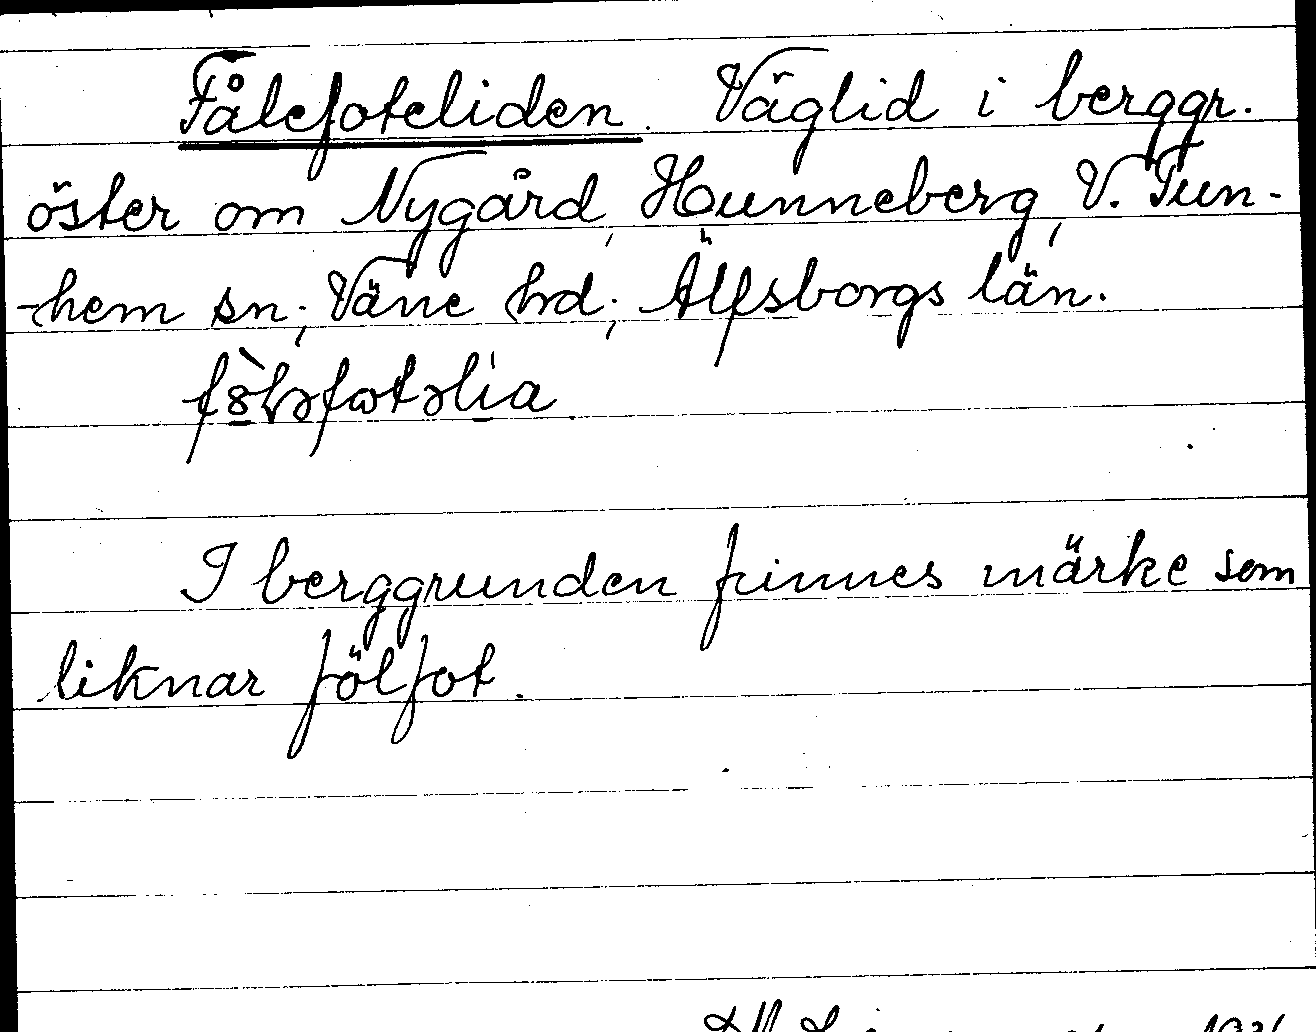 Fålefoteliden. Väglid i berggr.
öster om Nygård, Hunneberg, V. Tun-
-hem sn; Väne hd; Älfsborgs län.
I berggrunden finnes märke som
liknar fölfot.